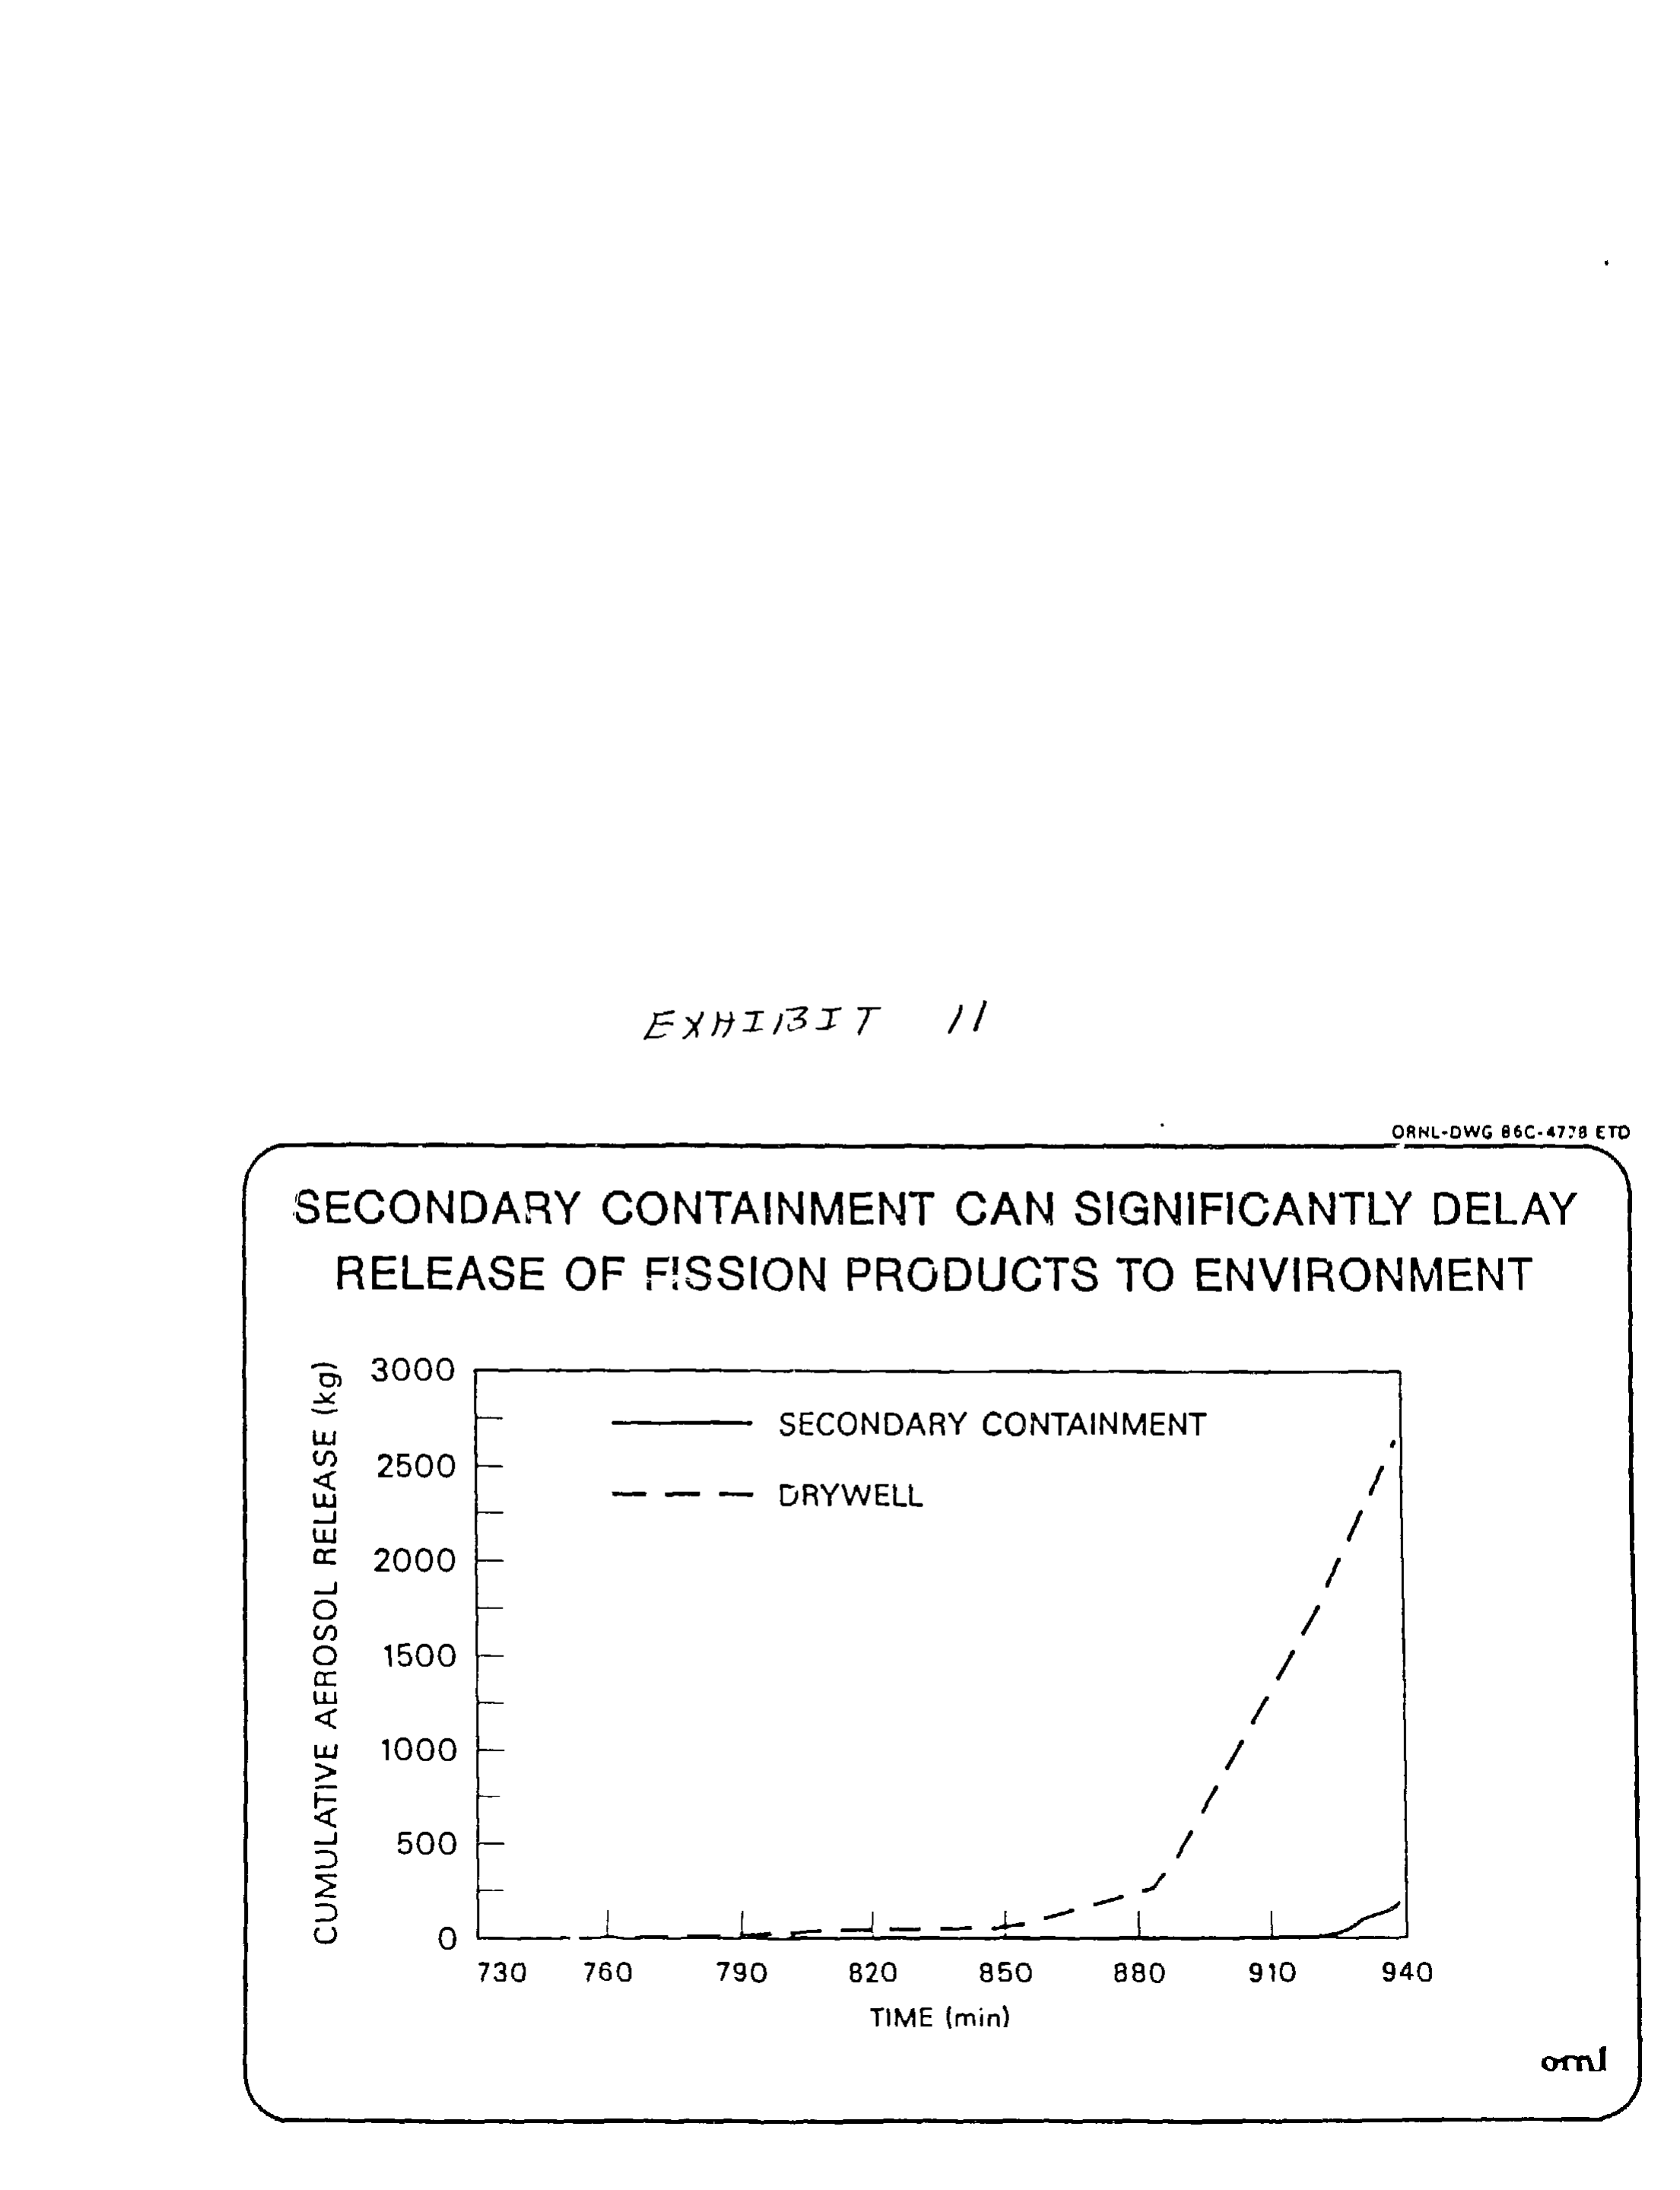 EXHIBIT 11
ORNL-DWG 86C-4778 ETD
SECONDARY CONTAINMENT CAN SIGNIFICANTLY DELAY
RELEASE OF FISSION PRODUCTS TO ENVIRONMENT
CUMULATIVE AEROSOL RELEASE (kg)
3000
2500
2000
1500
1000
500
0
SECONDARY CONTAINMENT
DRYWELL
730 760 790 820 850 880 910 940
TIME (min)
ornl